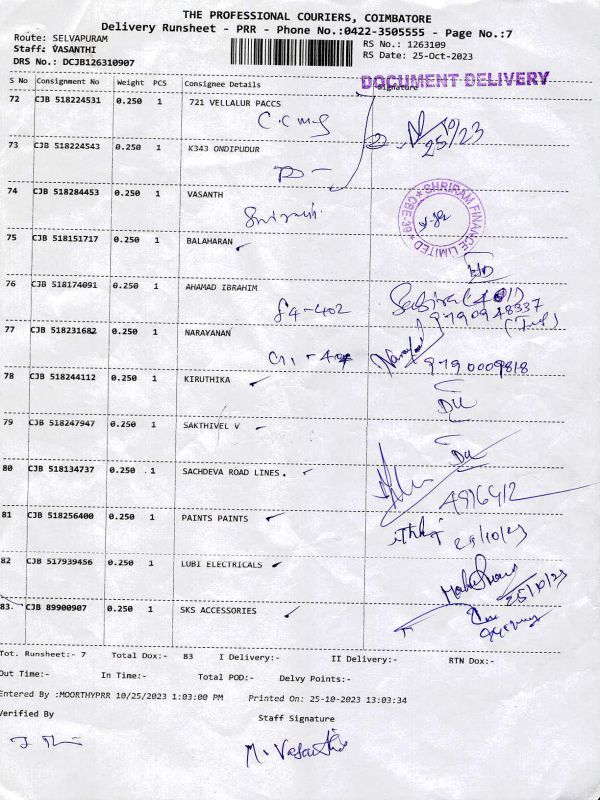 THE PROFESSIONAL COURIERS, COIMBATORE
Delivery Runsheet - PRR - Phone No.:0422-3505555 - Page No.:7
Route: SELVAPURAM
Staff: VASANTHI
RS No.: 1263109
DRS No.: DCJB126310907
RS Date: 25-Oct-2023
S No Consignment No Weight PCS Consignee Details Signature
DOCUMENT DELIVERY
72 CJB 518224531 0.250 1 721 VELLALUR PACCS
25/10/23
73 CJB 518224543 0.250 1 K343 ONDIPUDUR
74 CJB 518284453 0.250 1 VASANTH
SHRIRAM FINANCE LIMITED ★ CBE-39 ★
75 CJB 518151717 0.250 1 BALAHARAN
76 CJB 518174091 0.250 1 AHAMAD IBRAHIM
F4-402
9790948337
77 CJB 518231682 0.250 1 NARAYANAN
9790009818
78 CJB 518244112 0.250 1 KIRUTHIKA
79 CJB 518247947 0.250 1 SAKTHIVEL V
80 CJB 518134737 0.250 1 SACHDEVA ROAD LINES
81 CJB 518256400 0.250 1 PAINTS PAINTS
25/10/23
82 CJB 517939456 0.250 1 LUBI ELECTRICALS
25/10/23
83 CJB 89900907 0.250 1 SKS ACCESSORIES
Tot. Runsheet:- 7 Total Dox:- 83 I Delivery:- II Delivery:- RTN Dox:-
Out Time:- In Time:- Total POD:- Delvy Points:-
Entered By :MOORTHYPRR 10/25/2023 1:03:00 PM Printed On: 25-10-2023 13:03:34
Verified By Staff Signature
M. Vasanthi